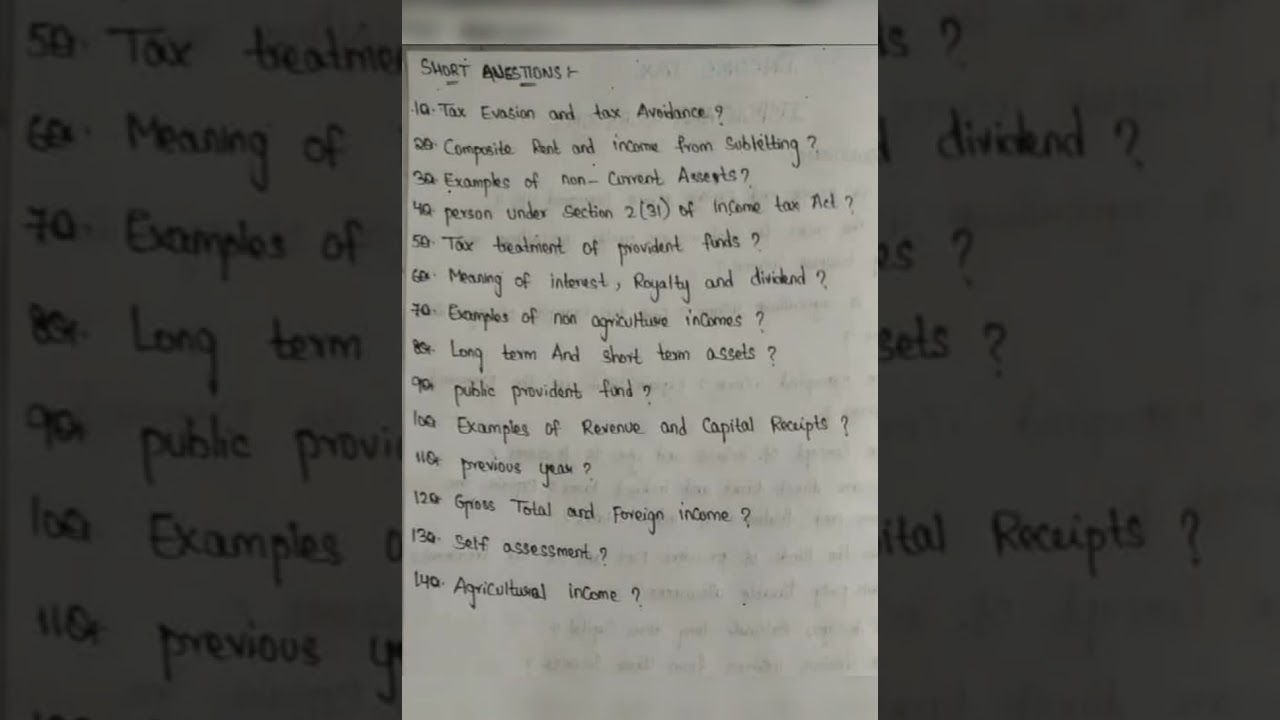 SHORT QUESTIONS :-
1Q. Tax Evasion and tax Avoidance ?
2Q. Composite Rent and income from Subletting ?
3Q. Examples of non- Current Asserts ?
4Q. person under Section 2(31) of Income tax Act ?
5Q. Tax treatment of provident funds ?
6Q. Meaning of interest, Royalty and dividend ?
7Q. Examples of non agriculture incomes ?
8Q. Long term And short term assets ?
9Q. public provident fund ?
10Q Examples of Revenue and Capital Receipts ?
11Q. previous year ?
12Q. Gross Total and Foreign income ?
13Q. Self assessment ?
14Q. Agricultural income ?